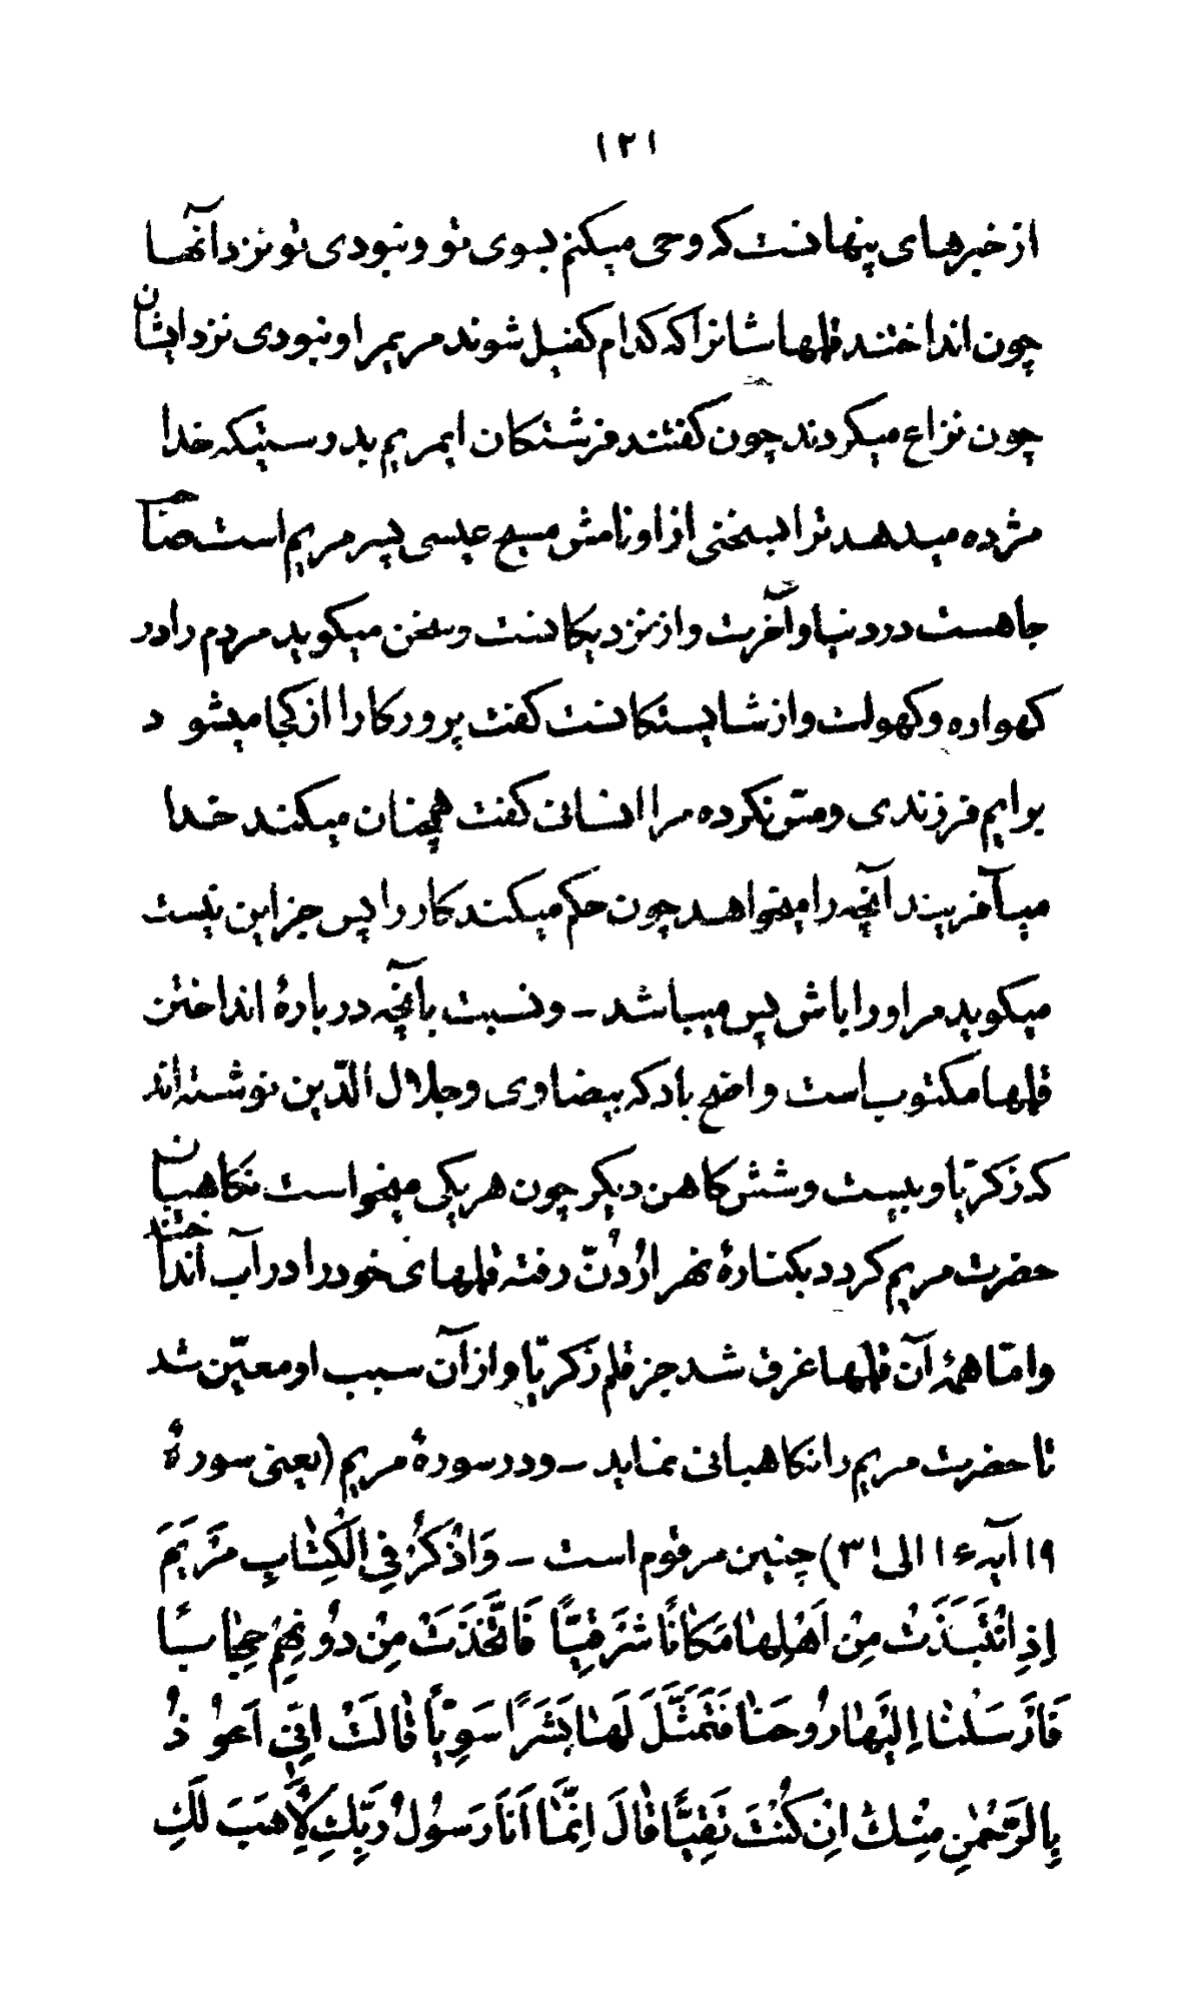 ۱۲۱
از خبرهای پنهانست که وحی میکنم بسوی تو و نبودی تو نزد آنها
چون انداختند قلمهاشانرا که کدام کفیل شوند مریمرا و نبودی نزد ایشان
چون نزاع میکردند چون کفتند فرشتکان ایمریم بدرستیکه خدا
مژده میدهد ترا بسخنی از او نامش مسیح عیسی پسر مریم است صاحب
جاهست در دنیا و آخرت و از نزدیکانست و سخن میکوید مردم را در
کهواره و کهولت و از شایستکانست کفت پرورکارا از کجا میشود
برایم فرزندی و مس نکرده مرا انسانی کفت همچنان میکند خدا
میآفریند آنچه را میخواهد چون حکم میکند کار را پس جز این نیست
میکوید مر او را باش پس میباشد – و نسبت بآنچه در بارهٔ انداختن
قلمها مکتوب است واضح باد که بیضاوی و جلال الدّین نوشته اند
که زکریّا و بیست و شش کاهن دیکر چون هر یکی میخواست نکاهبان
حضرت مریم کردد بکنارهٔ نهر اُردُنّ رفته قلمهای خود را در آب انداختند
و امّا همهٔ آن قلمها غرق شد جز قلم زکریّا و از آن سبب او معیّن شد
تا حضرت مریم را نکاهبانی نماید – و در سورهٔ مریم (یعنی سورهٔ
۱۹ آیه ۱۶ الی ۳۱) چنین مرقوم است – وَاذْكُرْ فِي الْكِتٰابِ مَرْيَمَ
اِذِ انْتَبَذَتْ مِنْ اَهْلِهٰا مَكٰانًا شَرْقِيًّا فَاتَّخَذَتْ مِنْ دُونِهِمْ حِجٰابًا
فَاَرْسَلْنٰا اِلَيْهٰا رُوحَنٰا فَتَمَثَّلَ لَهٰا بَشَرًا سَوِيًّا قٰالَتْ اِنّي اَعُوذُ
بِالرَّحْمٰنِ مِنْكَ اِنْ كُنْتَ تَقِيًّا قٰالَ اِنَّمٰا اَنَا رَسُولُ رَبِّكِ لِاَهَبَ لَكِ